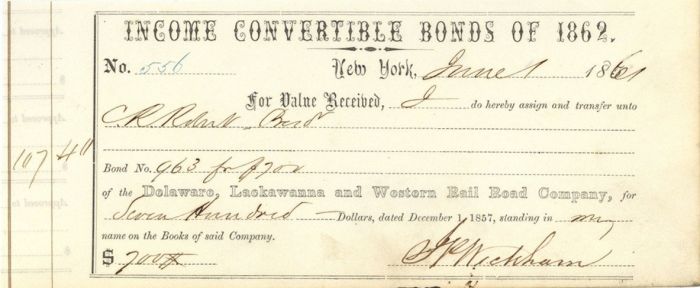 INCOME CONVERTIBLE BONDS OF 1862.
No. 556 New York, June 1 1861
For Value Received, I do hereby assign and transfer unto
C.R. Robert Presdt
Bond No. 963 for $700
107 40
of the Delaware, Lackawanna and Western Rail Road Company, for
Seven Hundred Dollars, dated December 1, 1857, standing in my
name on the Books of said Company.
$ 700 Wickham